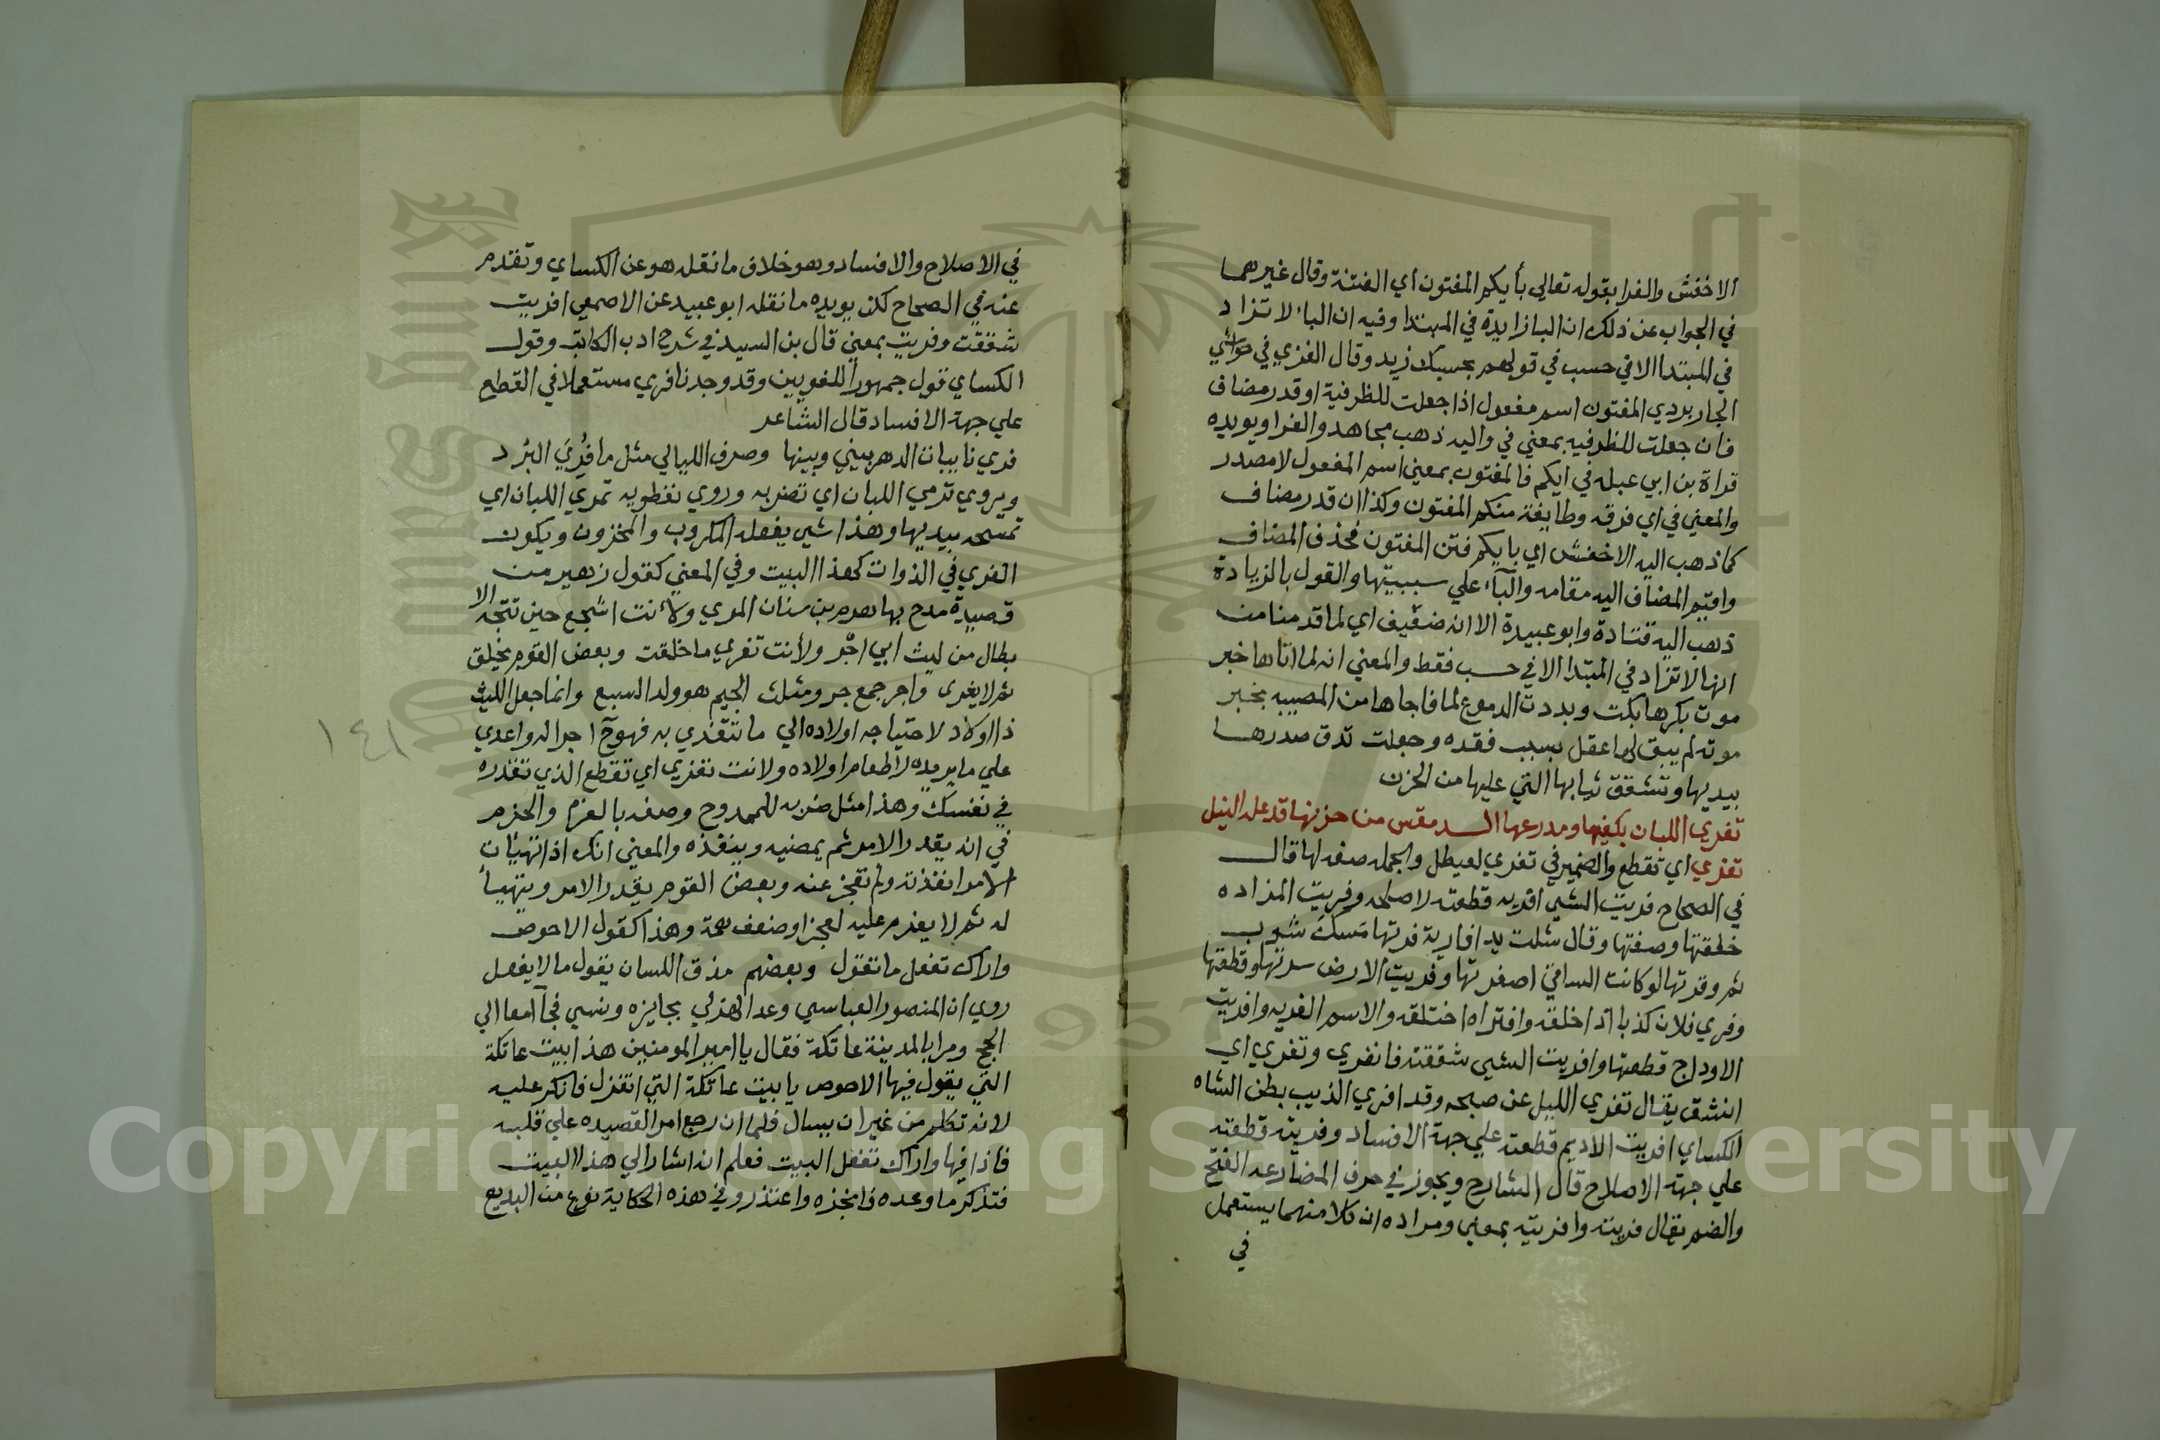 الاخفش والفرا بقوله تعالي بأيكم المفتون اي الفتنة وقال غيرهما
في الجواب عن ذلك ان البا زايدة في المبتدا وفيه ان الباء لا تزاد
في المبتدا الا في حسب في قولهم بحسبك زيد وقال الغزي في حواشي
الجاربردي المفتون اسم مفعول اذا جعلت للظرفية او قدر مضاف
فان جعلت للظرفيه بمعني في واليه ذهب مجاهد والفرا ويويده
قراة بن ابي عبله في ايكم فالمفتون بمعني اسم المفعول لا مصدر
والمعني في اي فرقه وطايفة منكم المفتون وكذا ان قدر مضاف
كما ذهب اليه الاخفش اي بايكم فتن المفتون فحذف المضاف
واقيم المضاف اليه مقامه والبآء علي سببيتها والقول بالزيادة
ذهب اليه قتادة وابو عبيدة الا انه ضعيف اي لما قدمنا من
انها لا تزاد في المبتدا الا في حسب فقط والمعني انه لما اتاها خبر
موت بكرها بكت وبددت الدموع لما فاجاها من المصيبه بخبر
موته لم يبق لها عقل بسبب فقده وجعلت تدق صدرها
بيديها وتشقق ثيابها التي عليها من الحزن
تفري اللبان بكفيها ومدرعها
تفري اي تقطع والضمير في تفري لعيطل والجمله صفه لها قال
في الصحاح فريت الشي افريه قطعته لاصلحه وفريت المزاده
خلقتها وصنعتها وقال شلت يدا فارية فرتها مسك شبوب
ثم وفرتها لو كانت الساقي اصغرتها وفريت الارض سرتها وقطعتها
وفري فلان كذبا اذا خلقه وافتراه اختلقه والاسم الفريه وافريت
الاوداج قطعتها وافريت الشي شققته فانفري وتفري اي
انشق يقال تفري الليل عن صبحه وقد افري الذيب بطن الشاه
الكساي افريت الاديم قطعته علي جهة الافساد وفريته قطعته
علي جهة الاصلاح قال الشارح ويجوز في حرف المضارعه الفتح
والضم يقال فريته وافريته بمعني ومراده ان كلا منهما يستعمل
في
في الاصلاح والافساد وهو خلاف ما نقله هو عن الكساي وتقدم
عنه في الصحاح لكن يويده ما نقله ابو عبيد عن الاصمعي افريت
شققت وفريت بمعني قال بن السيد في شرح ادب الكاتب وقول
الكساي قول جمهور اللغويين وقد وجدنا فري مستعملا في القطع
علي جهة الافساد قال الشاعر
فري نايبات الدهر بيني وبينها وصرف الليالي مثل ما فُرِيَ البُرد
ويروي ترمي اللبان اي تضربه وروي نفطويه تمري اللبان اي
تمسحه بيديها وهذا شي يفعله المكروب والمحزون ويكون
الفري في الذوات كهذا البيت وفي المعني كقول زهير من
قصيدة مدح بها هرم بن سنان المري ولأنت اشجع حين تتجه الا
بطال من ليث ابي اجْر ولأنت تفري ما خلقت وبعض القوم يخلق
ثم لا يفري واجر جمع جر ومثلث الجيم هو ولد السبع وانما جعل الليث
ذا اولاد لاحتياجه اولاده الي ما تتغذي به فهو اجرا له واعدي
علي ما يريده لاطعام اولاده ولانت تفري اي تقطع الذي تقدره
في نفسك وهذا مثل ضربه للممدوح وصفه بالعزم والحزم
في انه يقدر الامر ثم يمضيه وينفذه والمعني انك اذا تهيات
لامر انفذته ولم تعجز عنه وبعض القوم يقدر الامر ويتهيأ
له ثم لا يعزم عليه لعجز او ضعف همة وهذا كقول الاحوص
واراك تفعل ما تقول وبعضهم مذق اللسان يقول ما لا يفعل
روي ان المنصور العباسي وعد الهذلي بجايزه ونسي فحجا معا الي
الحج ومرا بالمدينة عاتكة فقال يا امير المومنين هذا بيت عاتكة
التي يقول فيها الاحوص يا بيت عاتكة التي اتغزل فانكر عليه
لانه تكلم من غير ان يسال فلما ان رجع امر القصيده علي قلبه
فاذا فيها واراك تفعل البيت فعلم انه اشار الي هذا البيت
فتذكر ما وعده فانجزه واعتذر وفي هذه الحكاية نوع من البديع
١٤١
Copyright © King Saud University
1957